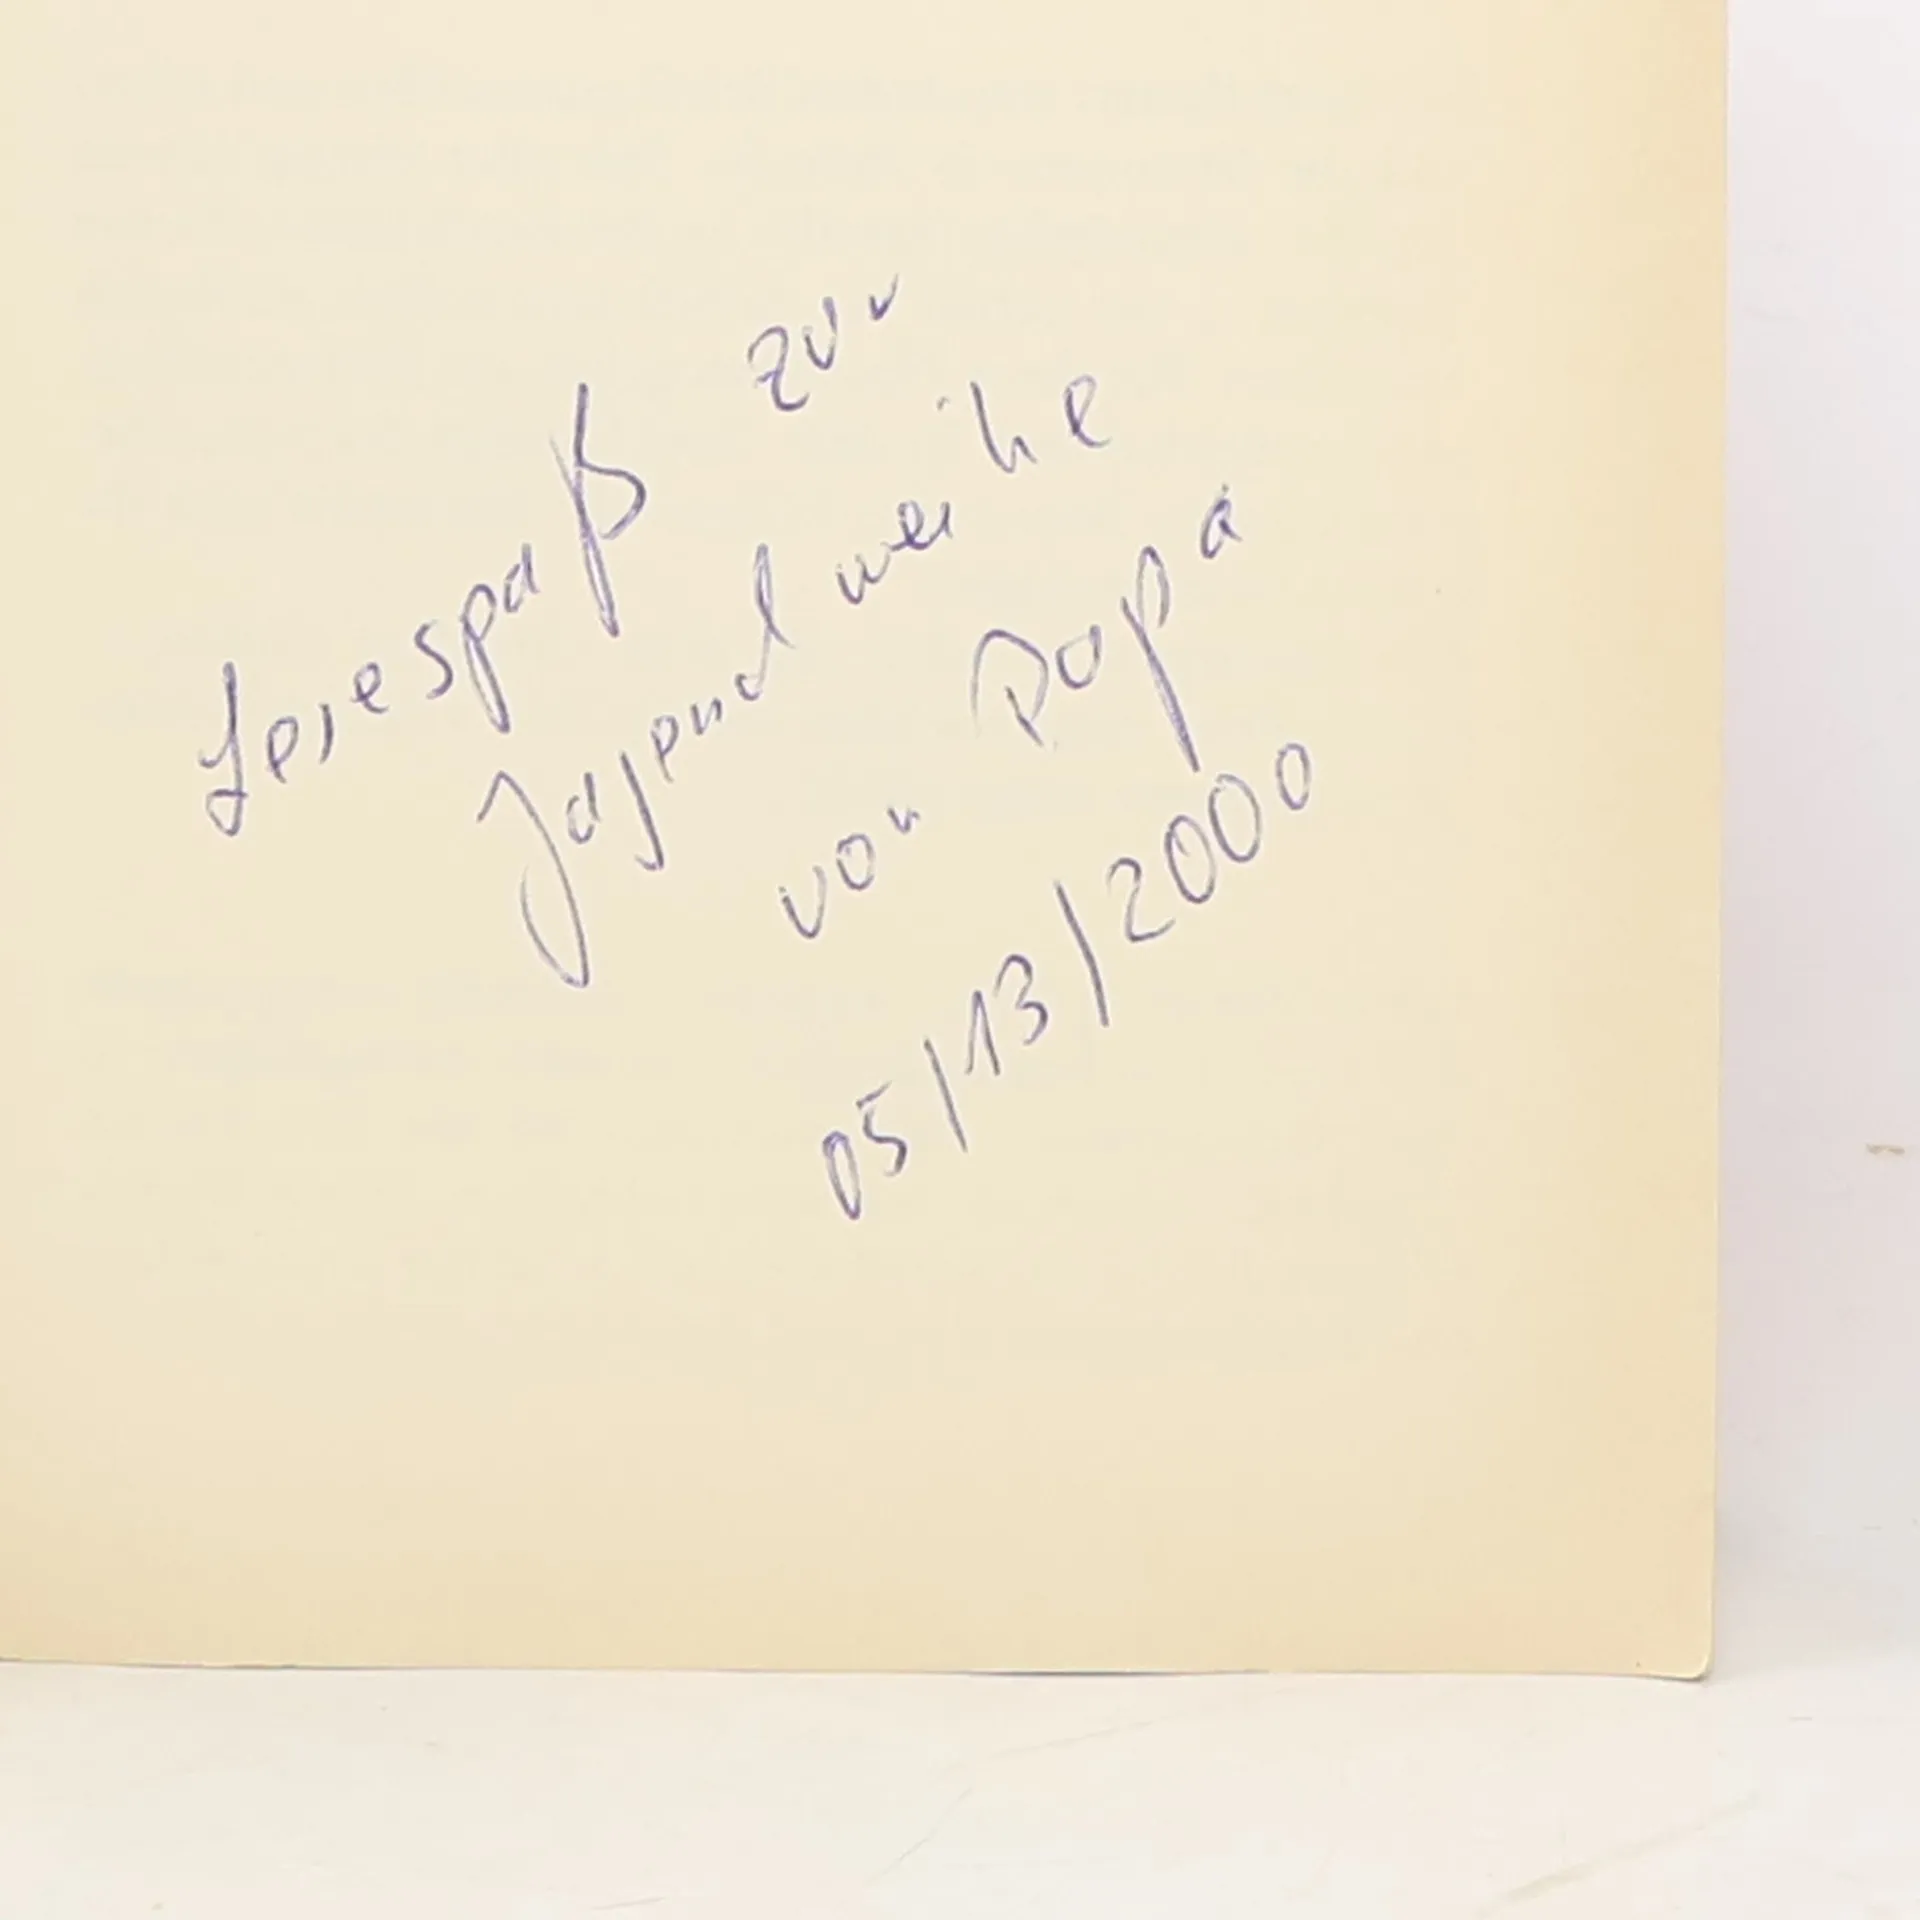 Lesespaß zur
Jugendweihe
von Papa
05/13/2000